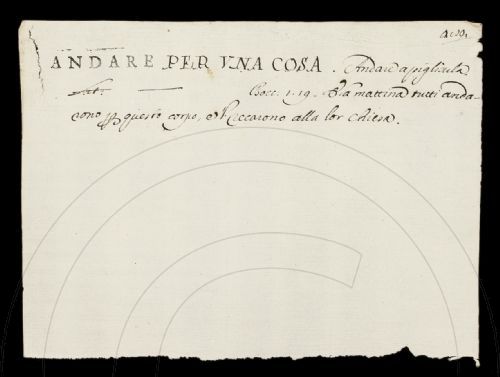 ANDARE PER VNA COSA. Andare a pigliarla.
Bocc. 1. 19. La mattina tutti anda-
rono p questo corpo, e Reccarono alla lor Chiesa.